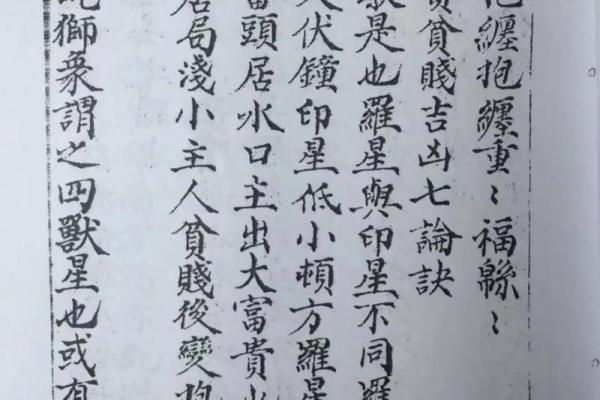 纏抱纏重〻福緜〻
貧賤吉凶七論訣
是也羅星與印星不同羅
伏鐘印星低小頓方羅星
當頭居水口主出大富貴
居局淺小主人貧賤後變抱
獅衆謂之四獸星也或有